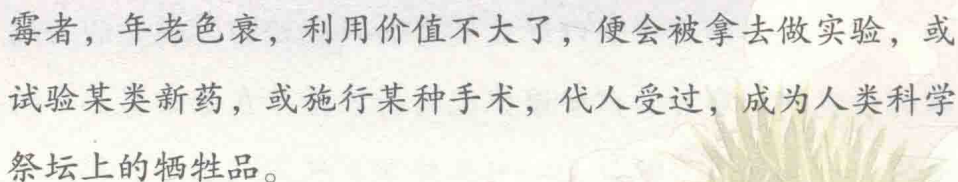 霉者，年老色衰，利用价值不大了，便会被拿去做实验，或
试验某类新药，或施行某种手术，代人受过，成为人类科学
祭坛上的牺牲品。